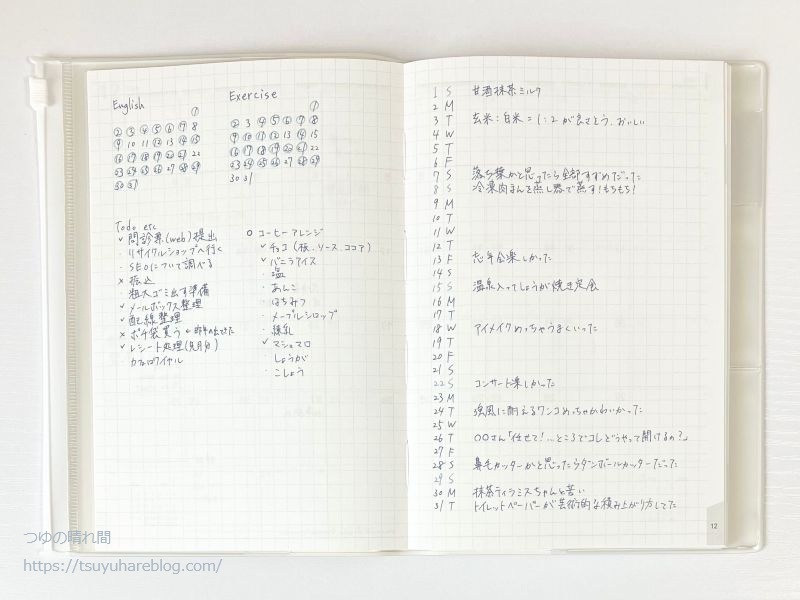 English
1
2 3 4 5 6 7 8
9 10 11 12 13 14 15
16 17 18 19 20 21 22
23 24 25 26 27 28 29
30 31
Exercise
1
2 3 4 5 6 7 8
9 10 11 12 13 14 15
16 17 18 19 20 21 22
23 24 25 26 27 28 29
30 31
Todo etc
✓ 問診票(web)提出
・リサイクルショップへ行く
・SEOについて調べる
× 振込
・粗大ゴミ出す準備
✓ メールボックス整理
✓ 配線整理
× ポチ袋買う ← 昨年の出てきた
✓ レシート処理(先月分)
・カフェロワイヤル
○ コーヒーアレンジ
✓ チョコ (板、ソース、ココア)
✓ バニラアイス
・塩
・あんこ
・はちみつ
・メープルシロップ
・練乳
✓ マシュマロ
・しょうが
・こしょう
1 S 甘酒抹茶ミルク
2 M
3 T 玄米:白米=1:2が良さそう。おいしい
4 W
5 T
6 F
7 S 落ち葉かと思ったら全部すずめだった
8 S 冷凍肉まんを蒸し器で蒸す!もちもち!
9 M
10 T
11 W
12 T
13 F 忘年会楽しかった
14 S
15 S 温泉入ってしょうが焼き定食
16 M
17 T
18 W アイメイクめっちゃうまくいった
19 T
20 F
21 S
22 S コンサート楽しかった
23 M
24 T 強風に耐えるワンコめっちゃかわいかった
25 W
26 T ○○さん「任せて!…ところでコレどうやって開けるの?」
27 F
28 S 鼻毛カッターかと思ったらダンボールカッターだった
29 S
30 M 抹茶ティラミスちゃんと苦い
31 T トイレットペーパーが芸術的な積み上がり方してた
12
つゆの晴れ間
https://tsuyuhareblog.com/